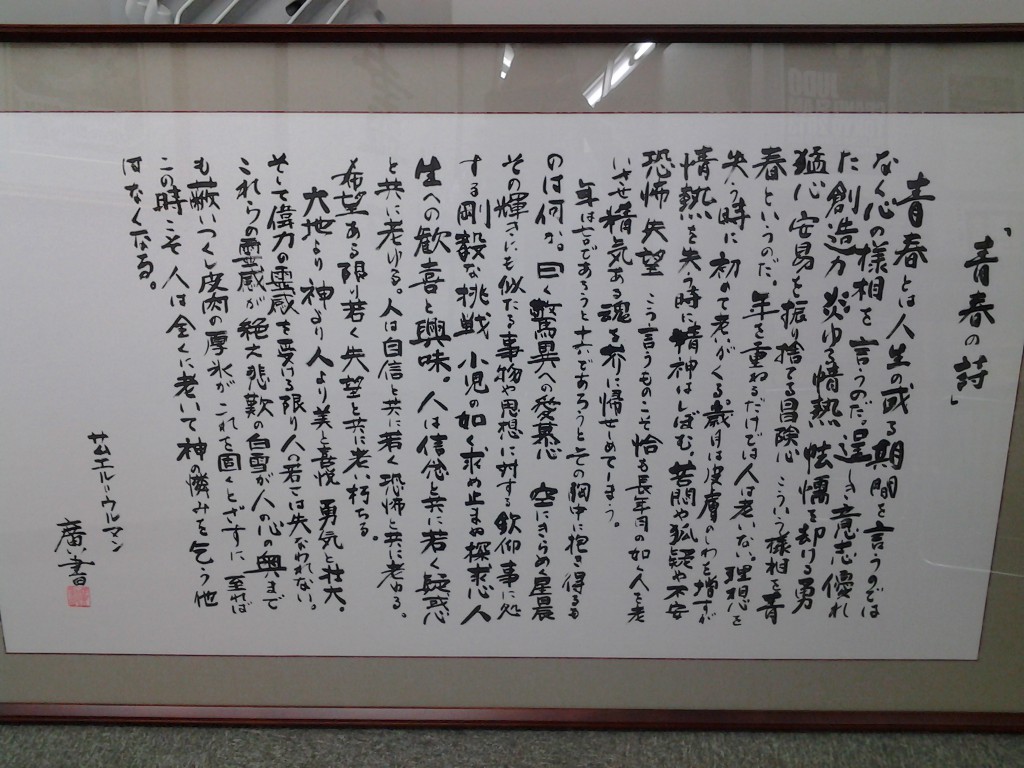 「青春の詩」
青春とは人生の或る期間を言うのでは
なく心の様相を言うのだ。逞しき意志優れ
た創造力炎ゆる情熱怯懦を却ける勇
猛心安易を振り捨てる冒険心こういう様相を青
春というのだ。年を重ねるだけでは人は老いない。理想を
失う時に初めて老いがくる。歳月は皮膚のしわを増すが
情熱を失う時に精神はしぼむ。苦悶や狐疑や不安
恐怖失望こう言うものこそ恰も長年月の如く人を老
いさせ精気ある魂を芥に帰せしめてしまう。
年は七十であろうと十六であろうとその胸中に抱き得るも
のは何か。曰く驚異への愛慕心空にきらめく星晨
その輝きにも似たる事物や思想に対する欽仰事に処
する剛毅な挑戦小児の如く求め止まぬ探求心人
生への歓喜と興味。人は信念と共に若く疑惑
と共に老ゆる。人は自信と共に若く恐怖と共に老ゆる。
希望ある限り若く失望と共に老い朽ちる。
大地より神より人より美と喜悦勇気と壮大。
そして偉力の霊感を受ける限り人の若さは失なわれない。
これらの霊感が絶え悲歎の白雪が人の心の奥まで
も蔽いつくし皮肉の厚氷がこれを固くとざすに至れば
この時こそ人は全くに老いて神の憐みを乞う他
はなくなる。
サムエル・ウルマン
廣書